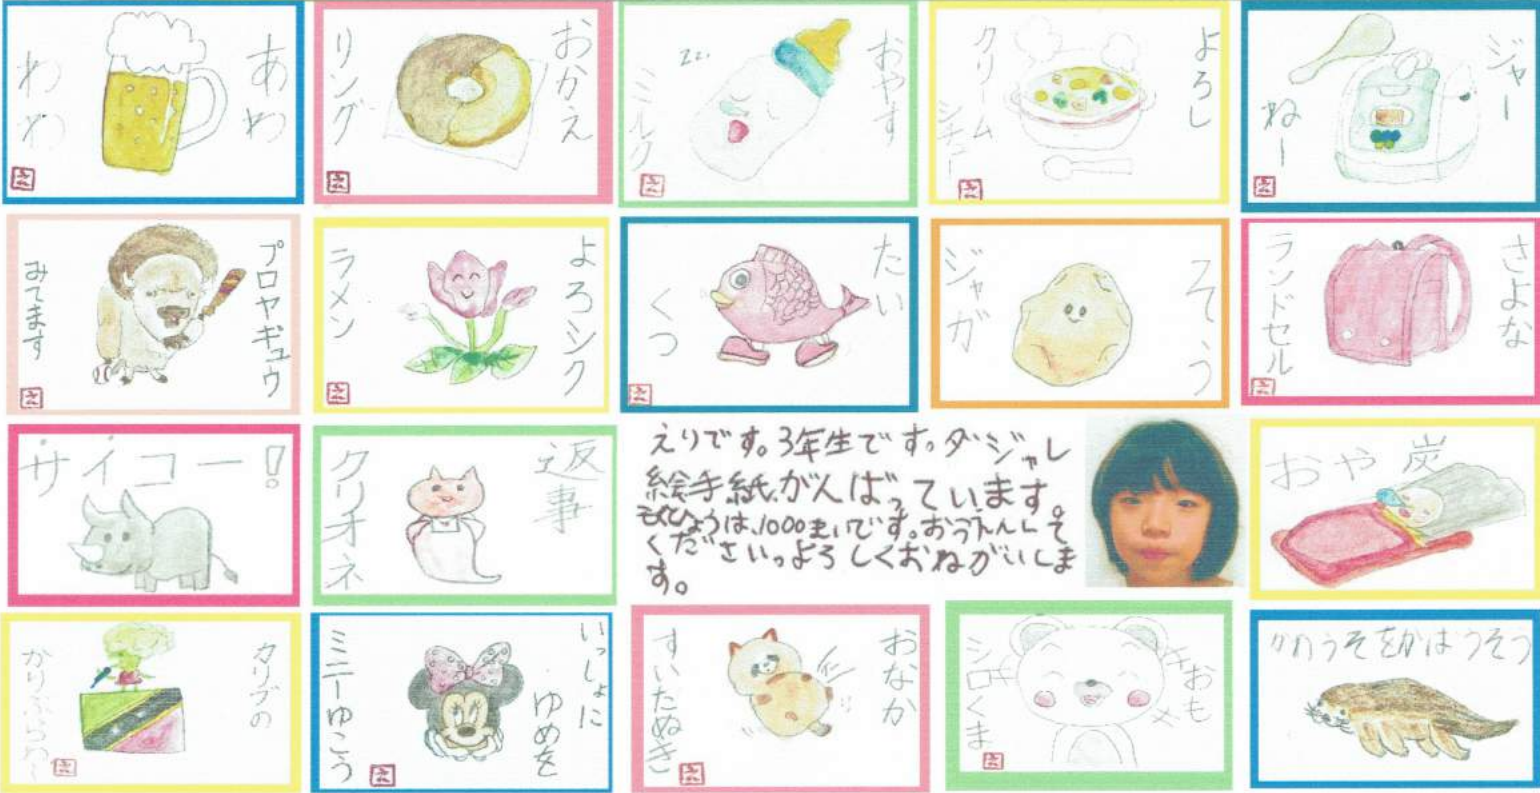 あわ
わわ
おかえ
リング
おやす
ミルク
zz.
よろし
クリーム
シチュー
ジャー
ねー
プロヤギュウ
みてます
よろシク
ラメン
たい
くつ
そう
ジャガ
さよな
ランドセル
サイコー!
返事
クリオネ
えりです。3年生です。ダジャレ
絵手紙、がんばっています。
もくひょうは、1000まいです。おうえんして
ください。よろしくおねがいしま
す。
おや炭
カリブの
いっしょに
ゆめを
ミニーゆこう
おなか
すいたぬき
おも
シロくま
かわうそをかはうそう